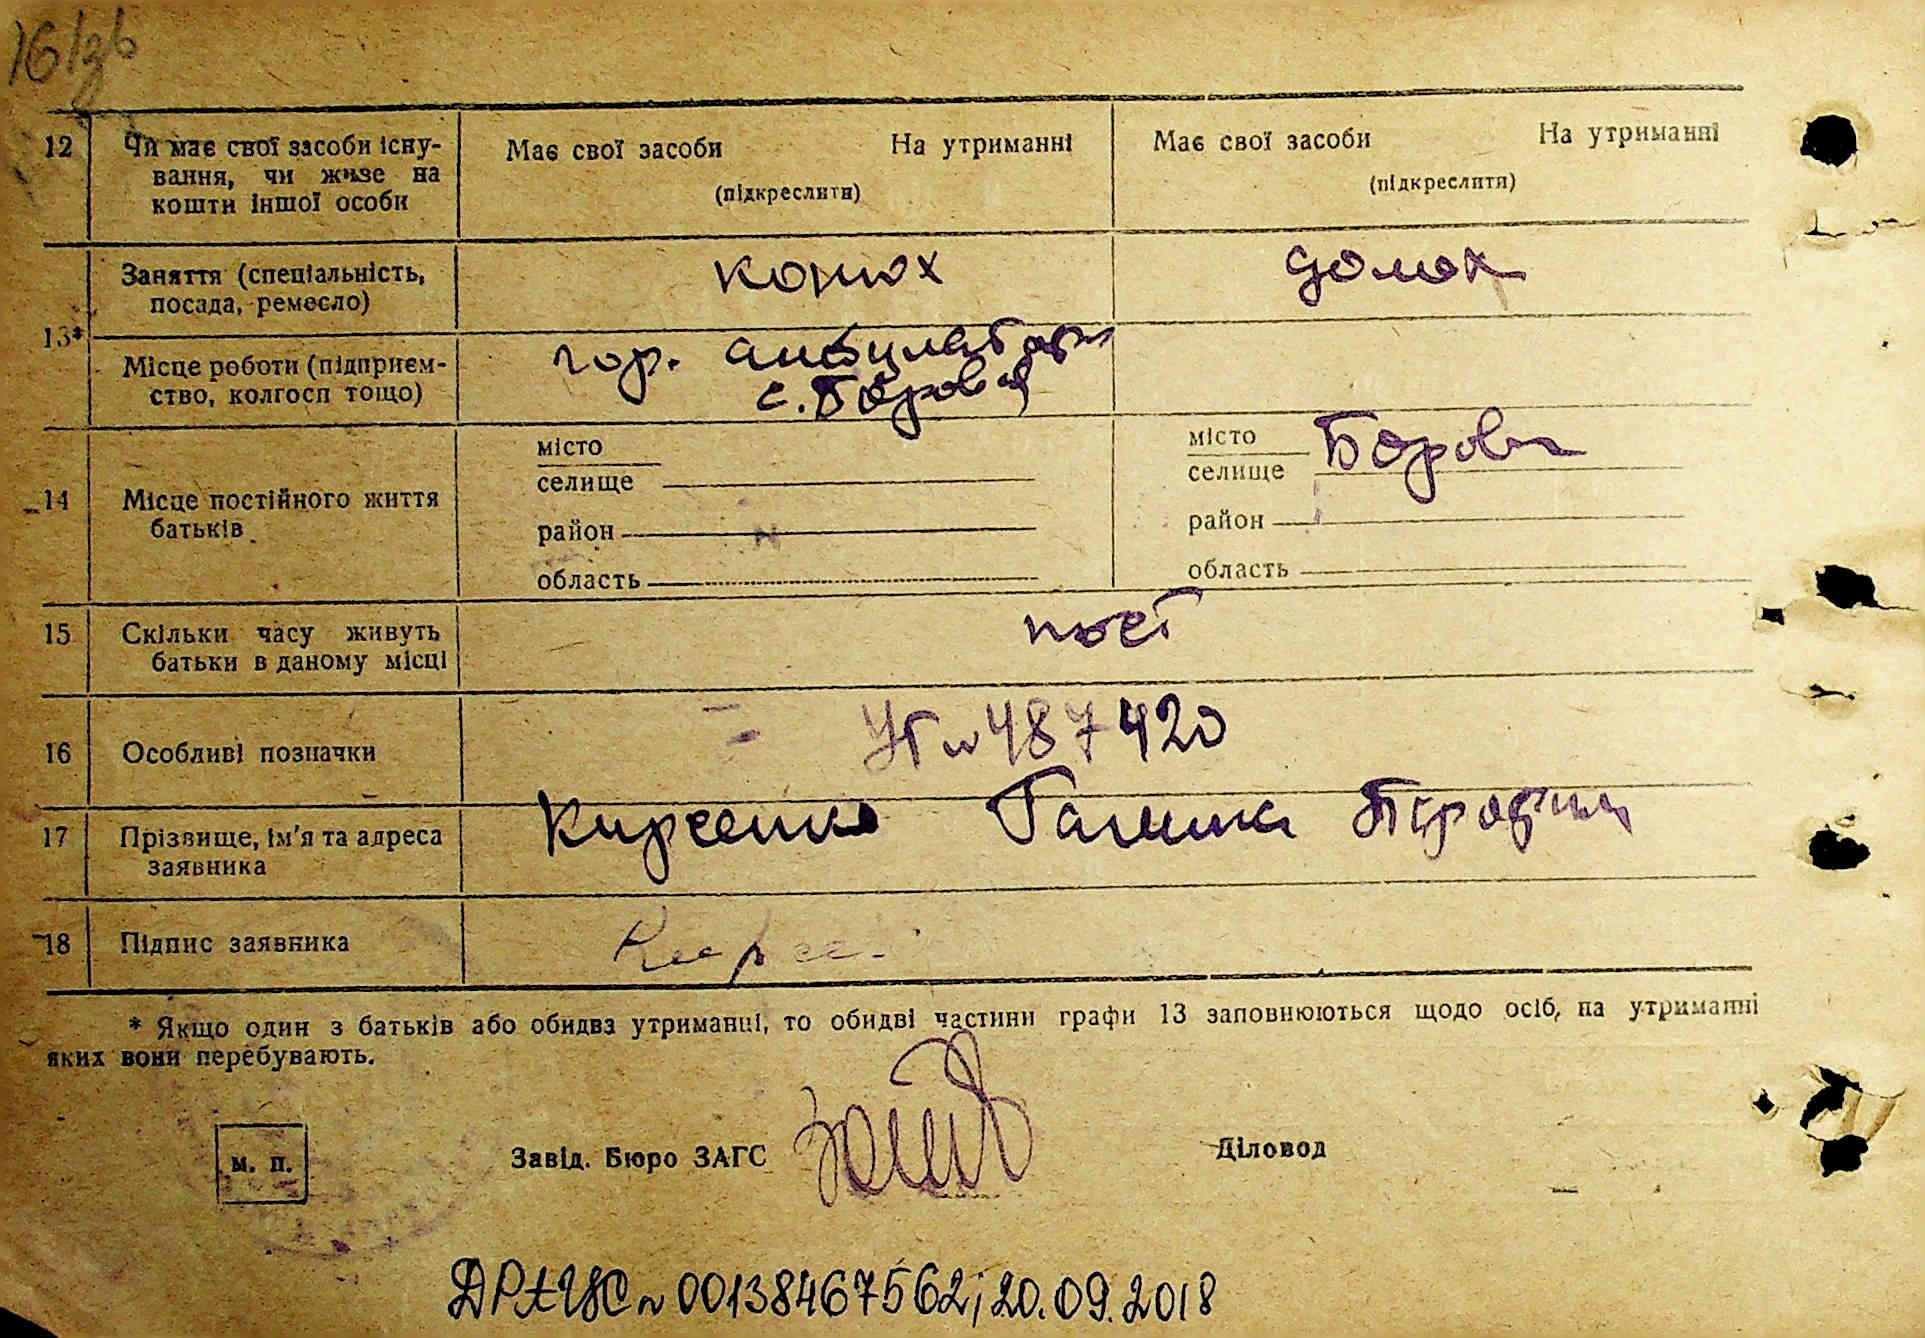 12 Чи має свої засоби існу-
вання, чи живе на
кошти іншої особи
Має свої засоби На утриманні
(підкреслити)
Має свої засоби На утриманні
(підкреслити)
13*
Заняття (спеціальність,
посада, ремесло)
конюх
домох
Місце роботи (підприєм-
ство, колгосп тощо)
гор. амбулаторія
с. Борова
14 Місце постійного життя
батьків
місто
селище
район
область
місто
селище Борова
район
область
15 Скільки часу живуть
батьки в даному місці
16 Особливі позначки
УГ № 487420
17 Прізвище, ім'я та адреса
заявника
Кирсенко Галина
18 Підпис заявника
* Якщо один з батьків або обидва утриманці, то обидві частини графи 13 заповнюються щодо осіб, на утриманні
яких вони перебувають.
м. п.
Завід. Бюро ЗАГС
Діловод
ДРАЦС № 00138467562; 20.09.2018